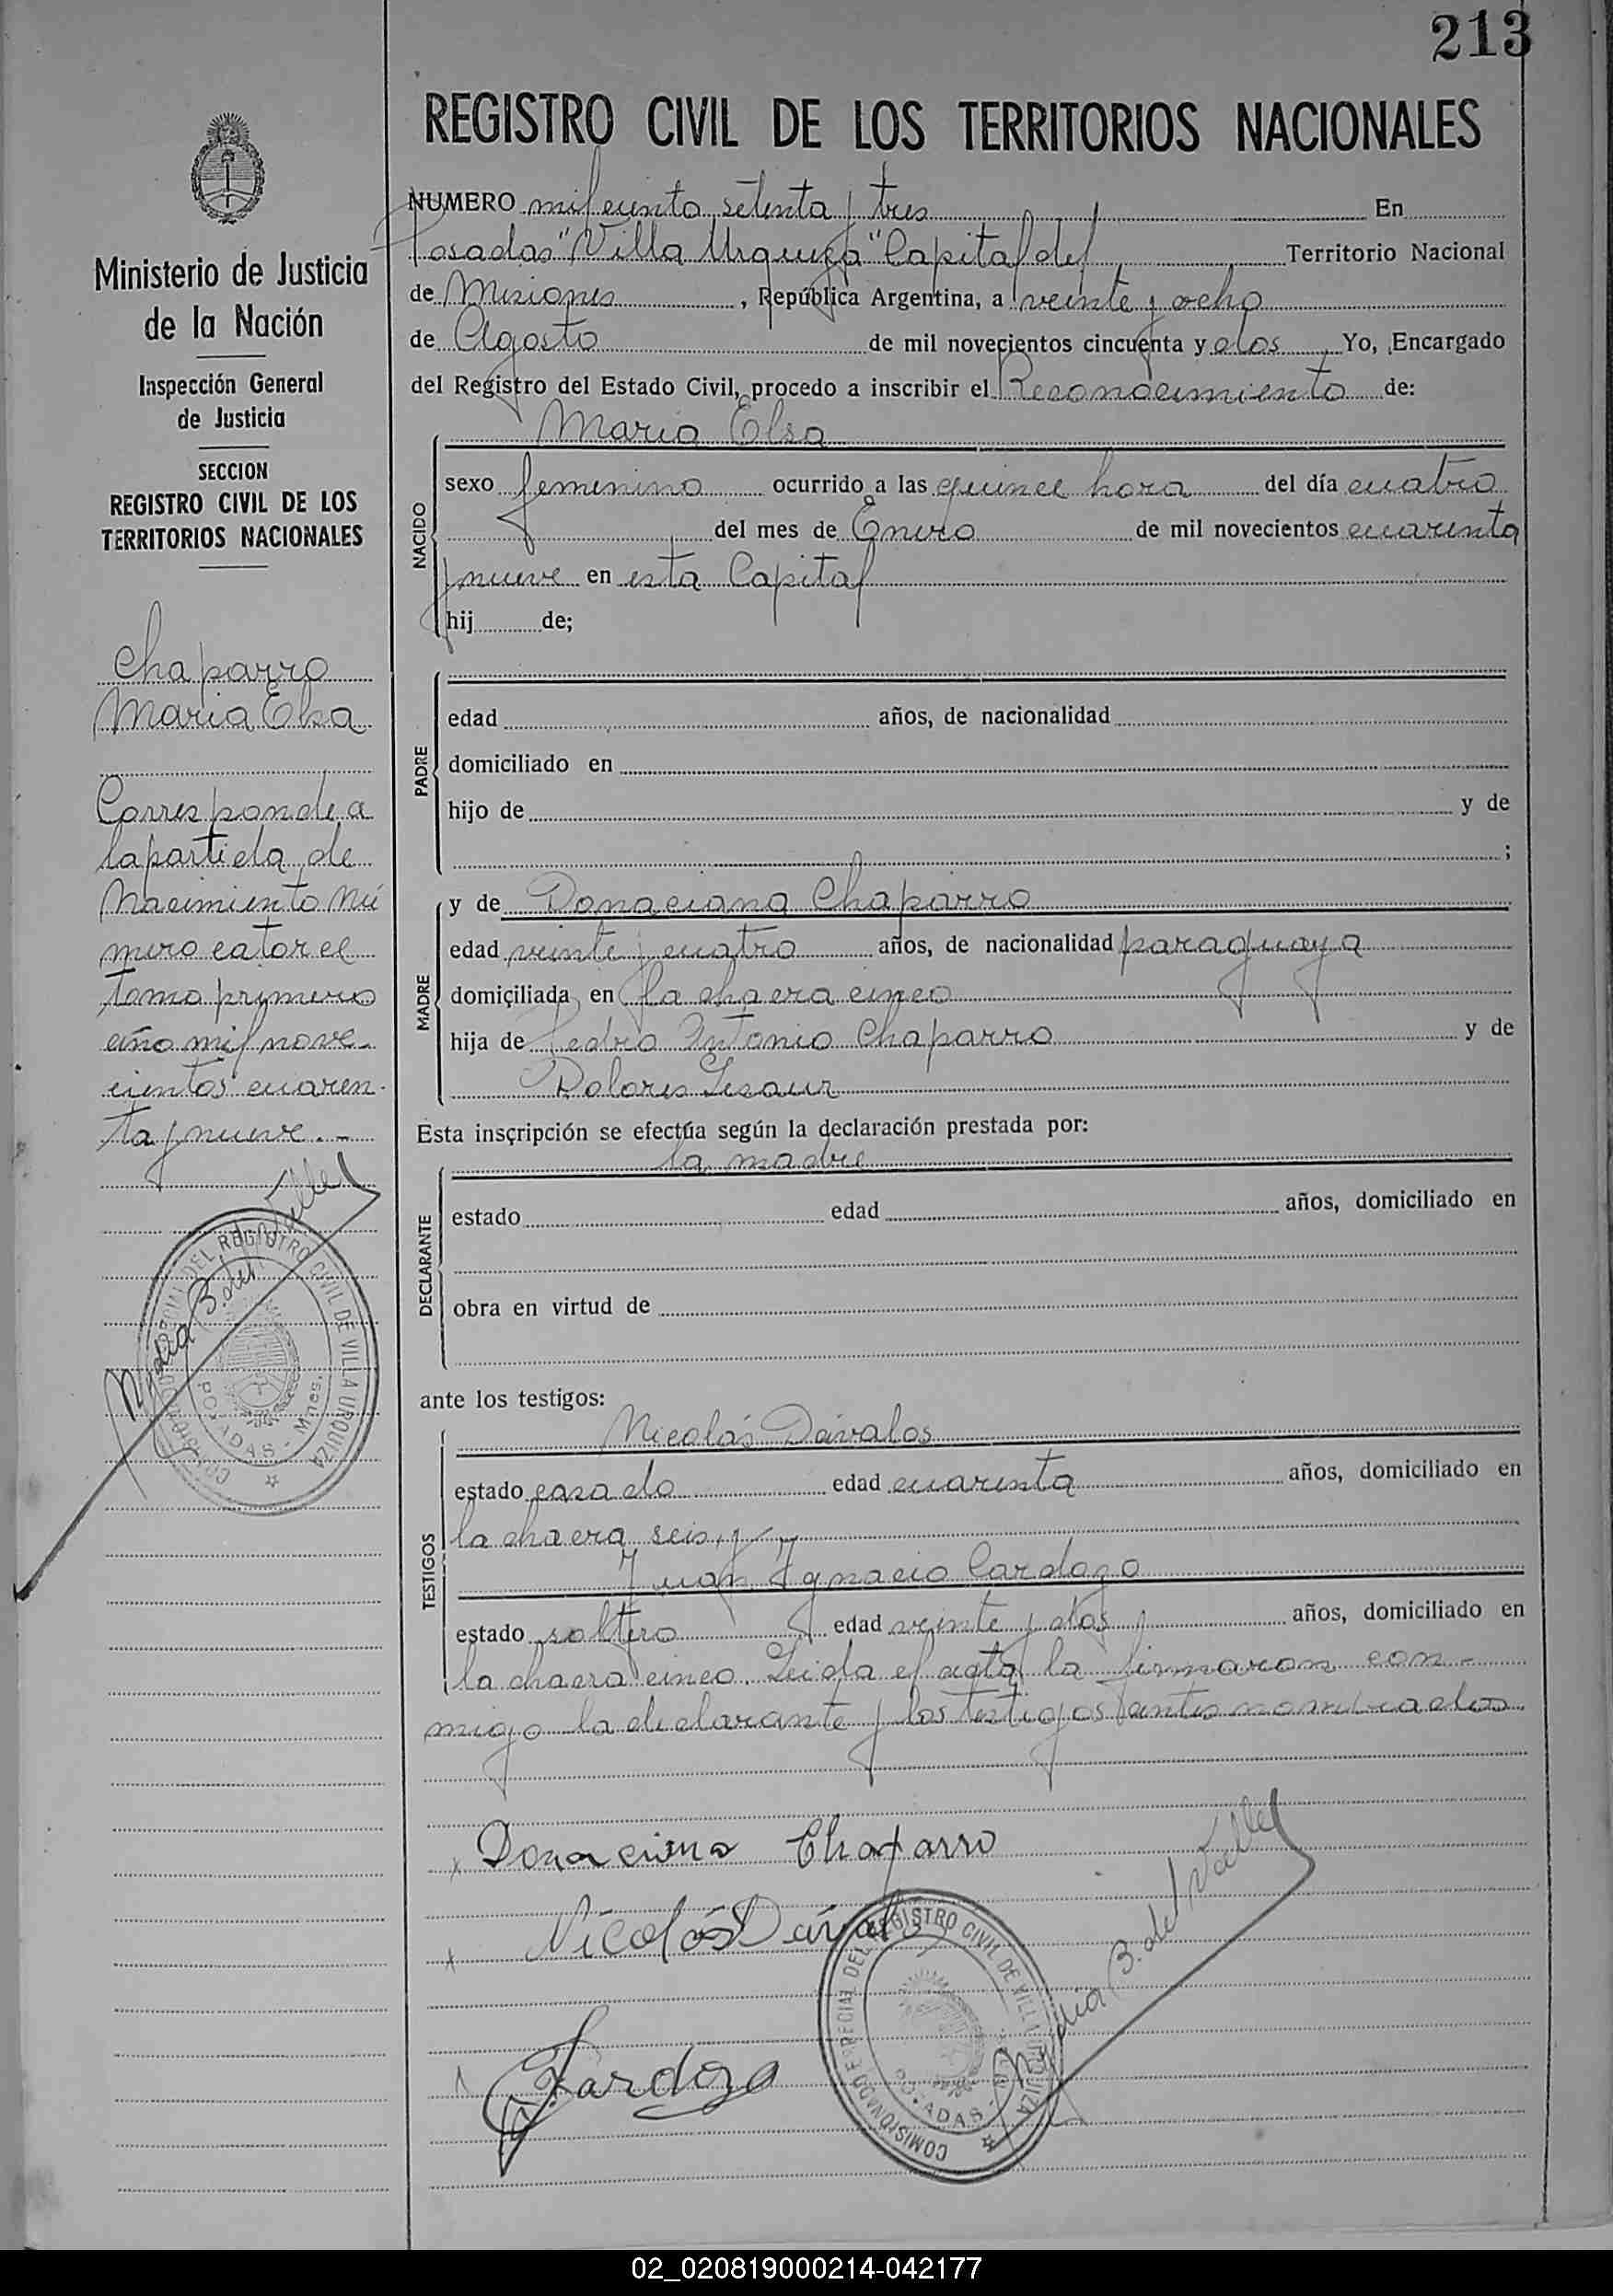 213
REGISTRO CIVIL DE LOS TERRITORIOS NACIONALES
Ministerio de Justicia
de la Nación
Inspección General
de Justicia
SECCION
REGISTRO CIVIL DE LOS
TERRITORIOS NACIONALES
Chaparro
Maria Elsa
Corresponde a
la partida de
Nacimiento Nú
mero catorce
tomo primero
año mil nove-
cientos cuaren-
ta y nueve.-
Nydia B. del Valle
COMISIONADO ESPECIAL DEL REGISTRO CIVIL DE VILLA URQUIZA
POSADAS - Mnes.
NUMERO mil ciento setenta y tres En
Posadas "Villa Urquiza" Capital del Territorio Nacional
de Misiones, República Argentina, a veinte y ocho
de Agosto de mil novecientos cincuenta y dos Yo, Encargado
del Registro del Estado Civil, procedo a inscribir el Reconocimiento de:
Maria Elsa
NACIDO
sexo femenino ocurrido a las quince hora del día cuatro
del mes de Enero de mil novecientos cuarenta
y nueve en esta Capital
hij de;
PADRE
edad años, de nacionalidad
domiciliado en
hijo de y de
;
MADRE
y de Donaciana Chaparro
edad veinte y cuatro años, de nacionalidad paraguaya
domiciliada en la chacra cinco
hija de Pedro Antonio Chaparro y de
Dolores
Esta inscripción se efectúa según la declaración prestada por:
la madre
DECLARANTE
estado edad años, domiciliado en
obra en virtud de
ante los testigos:
TESTIGOS
Nicolás Dávalos
estado casado edad cuarenta años, domiciliado en
la chacra seis, y
Juan Ygnacio Cardozo
estado soltero edad veinte y dos años, domiciliado en
la chacra cinco. Leida el acta la firmaron con-
migo la declarante y los testigos antes nombrados
Donaciana Chaparro
Nicolás Dávalos
Cardozo
Nydia B. del Valle
COMISIONADO ESPECIAL DEL REGISTRO CIVIL DE VILLA URQUIZA
POSADAS -
02_020819000214-042177